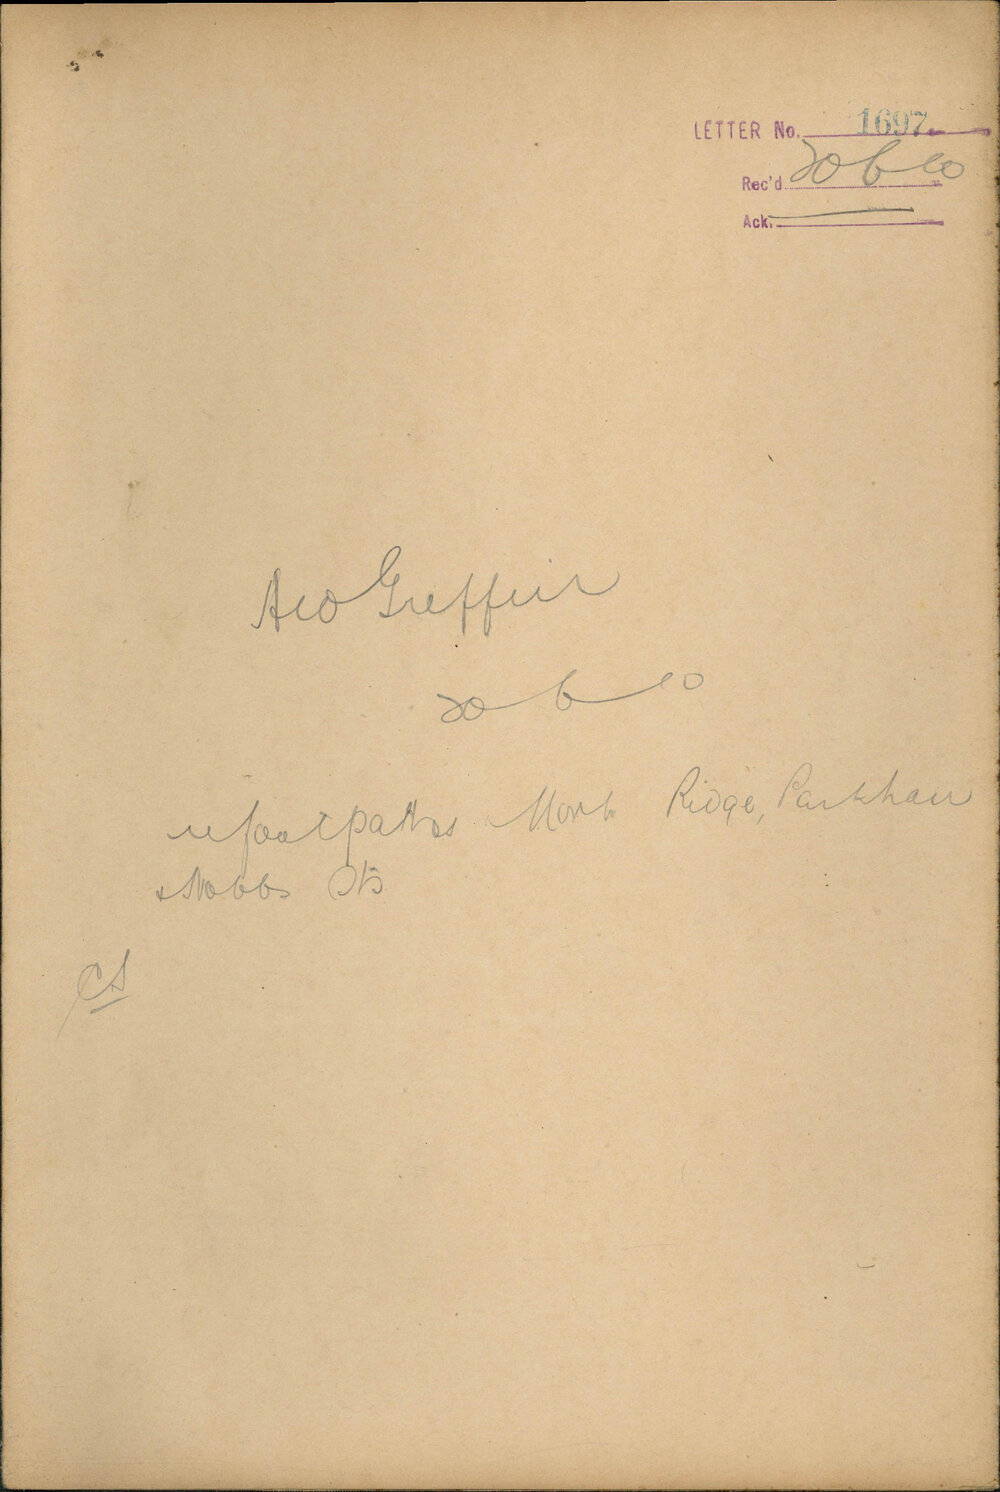 LETTER No. 1697
Rec'd 20 6 10
Ack.
Ald Greffin
20 6 10
re footpaths Mort Ridge, Parkham
& Nobbs Sts
CS